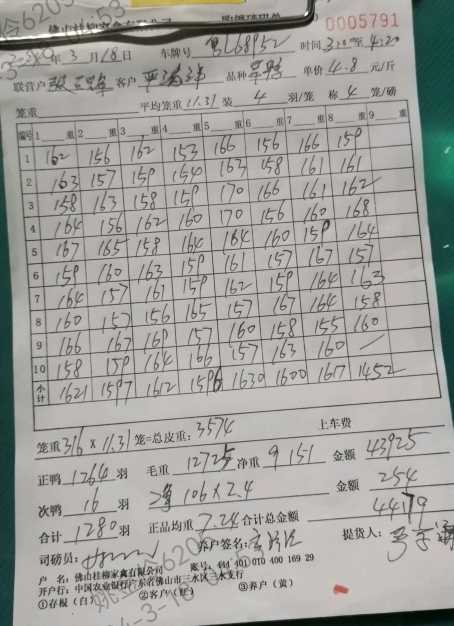 佛山桂柳家禽有限公司
0005791
年 3 月 18 日 车牌号 粤L68952 时间 3:20 至 4:20
联营户 客户 品种 单价 4.8 元/斤
笼重 平均笼重 11.31 装 4 羽/笼 称 4 笼/磅
编号 1 重 2 重 3 重 4 重 5 重 6 重 7 重 8 重 9 重
1 162 156 162 153 166 156 166 159
2 163 157 159 154 163 158 161 161
3 158 163 158 159 170 166 161 162
4 164 156 162 160 170 156 160 168
5 167 165 158 164 164 160 159 164
6 159 160 163 159 161 157 167 157
7 164 157 161 159 162 159 164 163
8 160 157 156 165 157 167 164 158
9 166 167 169 157 160 158 155 160
10 158 159 164 166 157 163 160
小计 1621 1597 1612 1596 1630 1600 1617 1452
笼重 316 × 11.31 笼=总皮重: 3574 上车费
正鸭 1264 羽 毛重 12725 净重 9151 金额 43925
次鸭 16 羽 净 106×2.4 金额 254
合计 1280 羽 正品均重 7.24 合计总金额 44179
司磅员: 养户签名: 提货人:
户 名: 佛山桂柳家禽有限公司 账号: 444 401 010 400 169 29
开户行: 中国农业银行广东省佛山市三水区三水支行
①存根(白) ②客户(红) ③养户(黄)